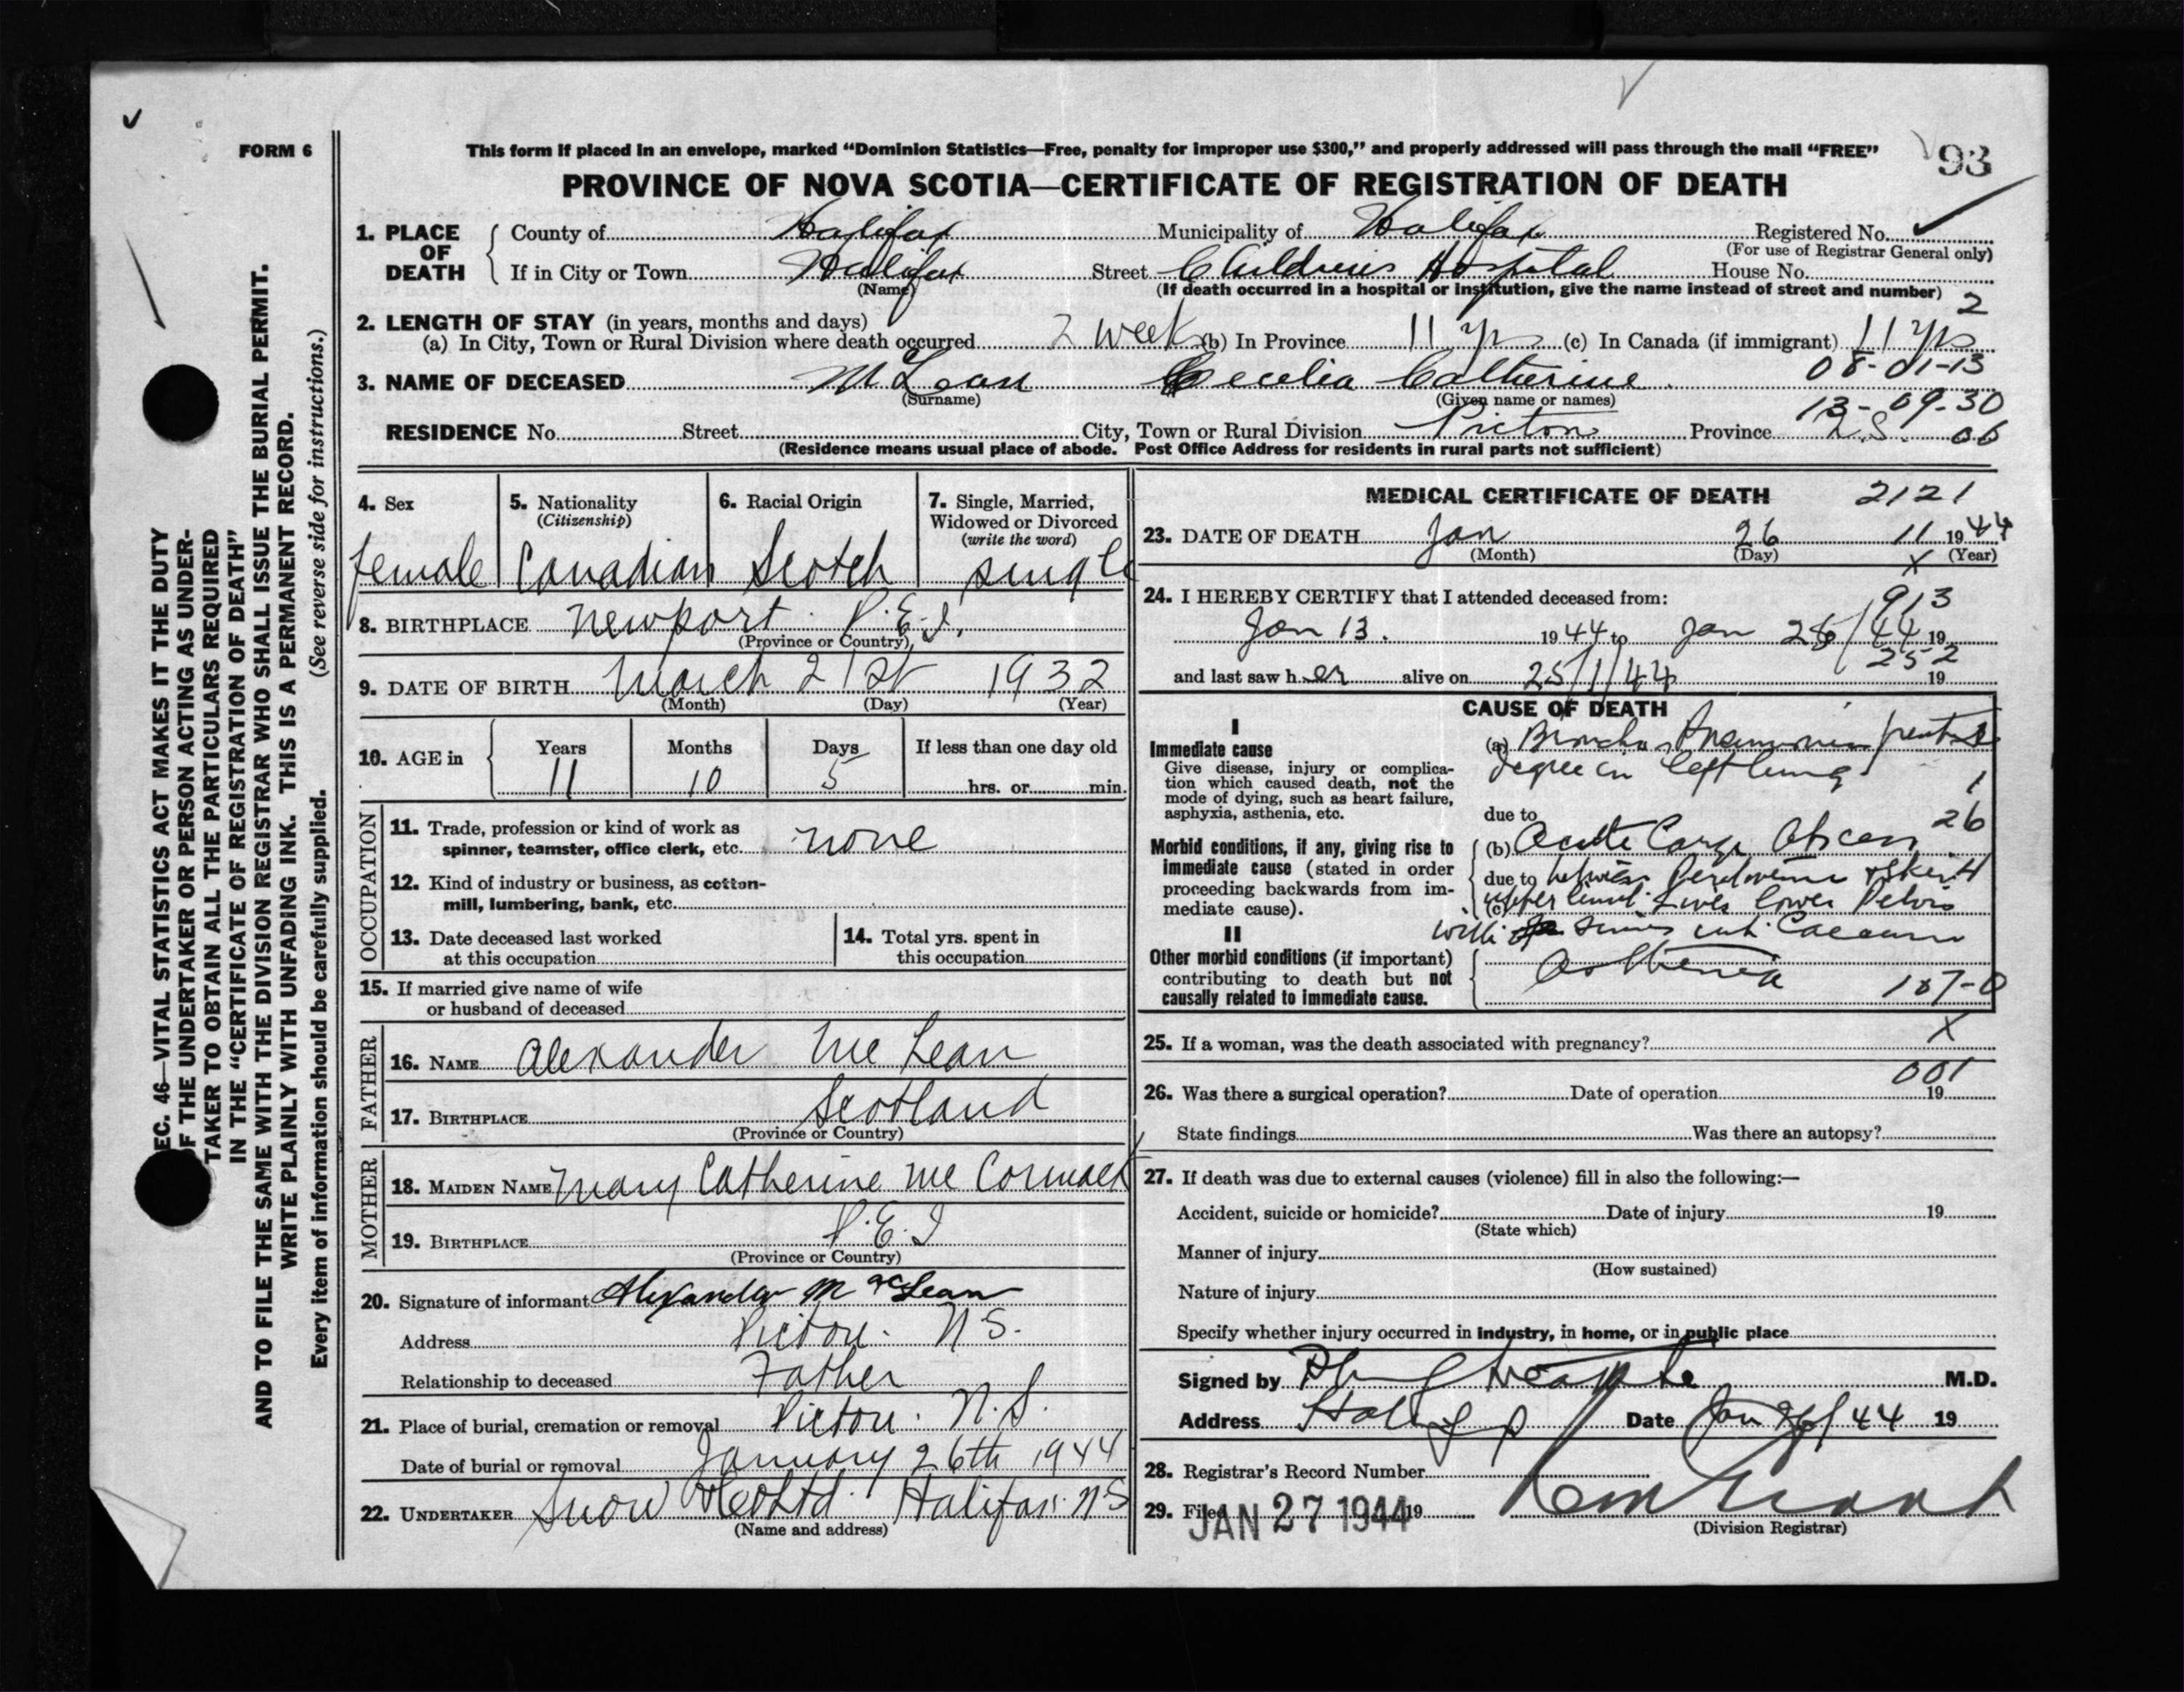 FORM 6
This form if placed in an envelope, marked "Dominion Statistics—Free, penalty for improper use $300," and properly addressed will pass through the mail "FREE"
93
PROVINCE OF NOVA SCOTIA—CERTIFICATE OF REGISTRATION OF DEATH
1. PLACE OF DEATH
County of Halifax Municipality of Halifax Registered No.
(For use of Registrar General only)
If in City or Town Halifax Street Childrens Hospital House No.
(Name) (If death occurred in a hospital or institution, give the name instead of street and number)
2
2. LENGTH OF STAY (in years, months and days)
(a) In City, Town or Rural Division where death occurred 2 weeks (b) In Province 11 yrs (c) In Canada (if immigrant) 11 yrs
08-01-13
3. NAME OF DECEASED McLean Cecelia Catherine
(Surname) (Given name or names)
13-09-30
RESIDENCE No. Street City, Town or Rural Division Pictou Province N.S. 06
(Residence means usual place of abode. Post Office Address for residents in rural parts not sufficient)
4. Sex 5. Nationality (Citizenship) 6. Racial Origin 7. Single, Married, Widowed or Divorced (write the word)
female Canadian Scotch single
8. BIRTHPLACE Newport P.E.I.
(Province or Country)
9. DATE OF BIRTH March 21st 1932
(Month) (Day) (Year)
10. AGE in Years Months Days If less than one day old
11 10 5 hrs. or min.
OCCUPATION
11. Trade, profession or kind of work as
spinner, teamster, office clerk, etc. none
12. Kind of industry or business, as cotton-
mill, lumbering, bank, etc.
13. Date deceased last worked
at this occupation
14. Total yrs. spent in
this occupation
15. If married give name of wife
or husband of deceased
FATHER
16. NAME Alexander McLean
17. BIRTHPLACE Scotland
(Province or Country)
MOTHER
18. MAIDEN NAME Mary Catherine McCormack
19. BIRTHPLACE P.E.I
(Province or Country)
20. Signature of informant Alexander McLean
Address Pictou. N S.
Relationship to deceased Father
21. Place of burial, cremation or removal Pictou. N.S.
Date of burial or removal January 26th 1944
22. UNDERTAKER Snow & Co Ltd. Halifax. N.S
(Name and address)
MEDICAL CERTIFICATE OF DEATH 2121
23. DATE OF DEATH Jan 26 11 1944
(Month) (Day) (Year)
X
24. I HEREBY CERTIFY that I attended deceased from:
913
Jan 13. 1944 to Jan 26/44 19
252
and last saw her alive on 25/1/44 19
CAUSE OF DEATH
I
Immediate cause
Give disease, injury or complica-
tion which caused death, not the
mode of dying, such as heart failure,
asphyxia, asthenia, etc.
(a) Broncho Pneumonia greatest
degree in left lung
1
due to
26
Morbid conditions, if any, giving rise to
immediate cause (stated in order
proceeding backwards from im-
mediate cause).
(b) Acute Large Abscess
due to between
(c) upper limit Liver lower Pelvis
with sinus into Caecum
II
Other morbid conditions (if important)
contributing to death but not
causally related to immediate cause.
Asthenia
107-0
25. If a woman, was the death associated with pregnancy? X
001
26. Was there a surgical operation? Date of operation 19
State findings Was there an autopsy?
27. If death was due to external causes (violence) fill in also the following:—
Accident, suicide or homicide? Date of injury 19
(State which)
Manner of injury
(How sustained)
Nature of injury
Specify whether injury occurred in industry, in home, or in public place
Signed by M.D.
Address Halifax Date Jan 26/44 19
28. Registrar's Record Number
29. Filed JAN 27 1944 19
(Division Registrar)
EC. 46—VITAL STATISTICS ACT MAKES IT THE DUTY
OF THE UNDERTAKER OR PERSON ACTING AS UNDER-
TAKER TO OBTAIN ALL THE PARTICULARS REQUIRED
IN THE "CERTIFICATE OF REGISTRATION OF DEATH"
AND TO FILE THE SAME WITH THE DIVISION REGISTRAR WHO SHALL ISSUE THE BURIAL PERMIT.
WRITE PLAINLY WITH UNFADING INK. THIS IS A PERMANENT RECORD.
Every item of information should be carefully supplied. (See reverse side for instructions.)